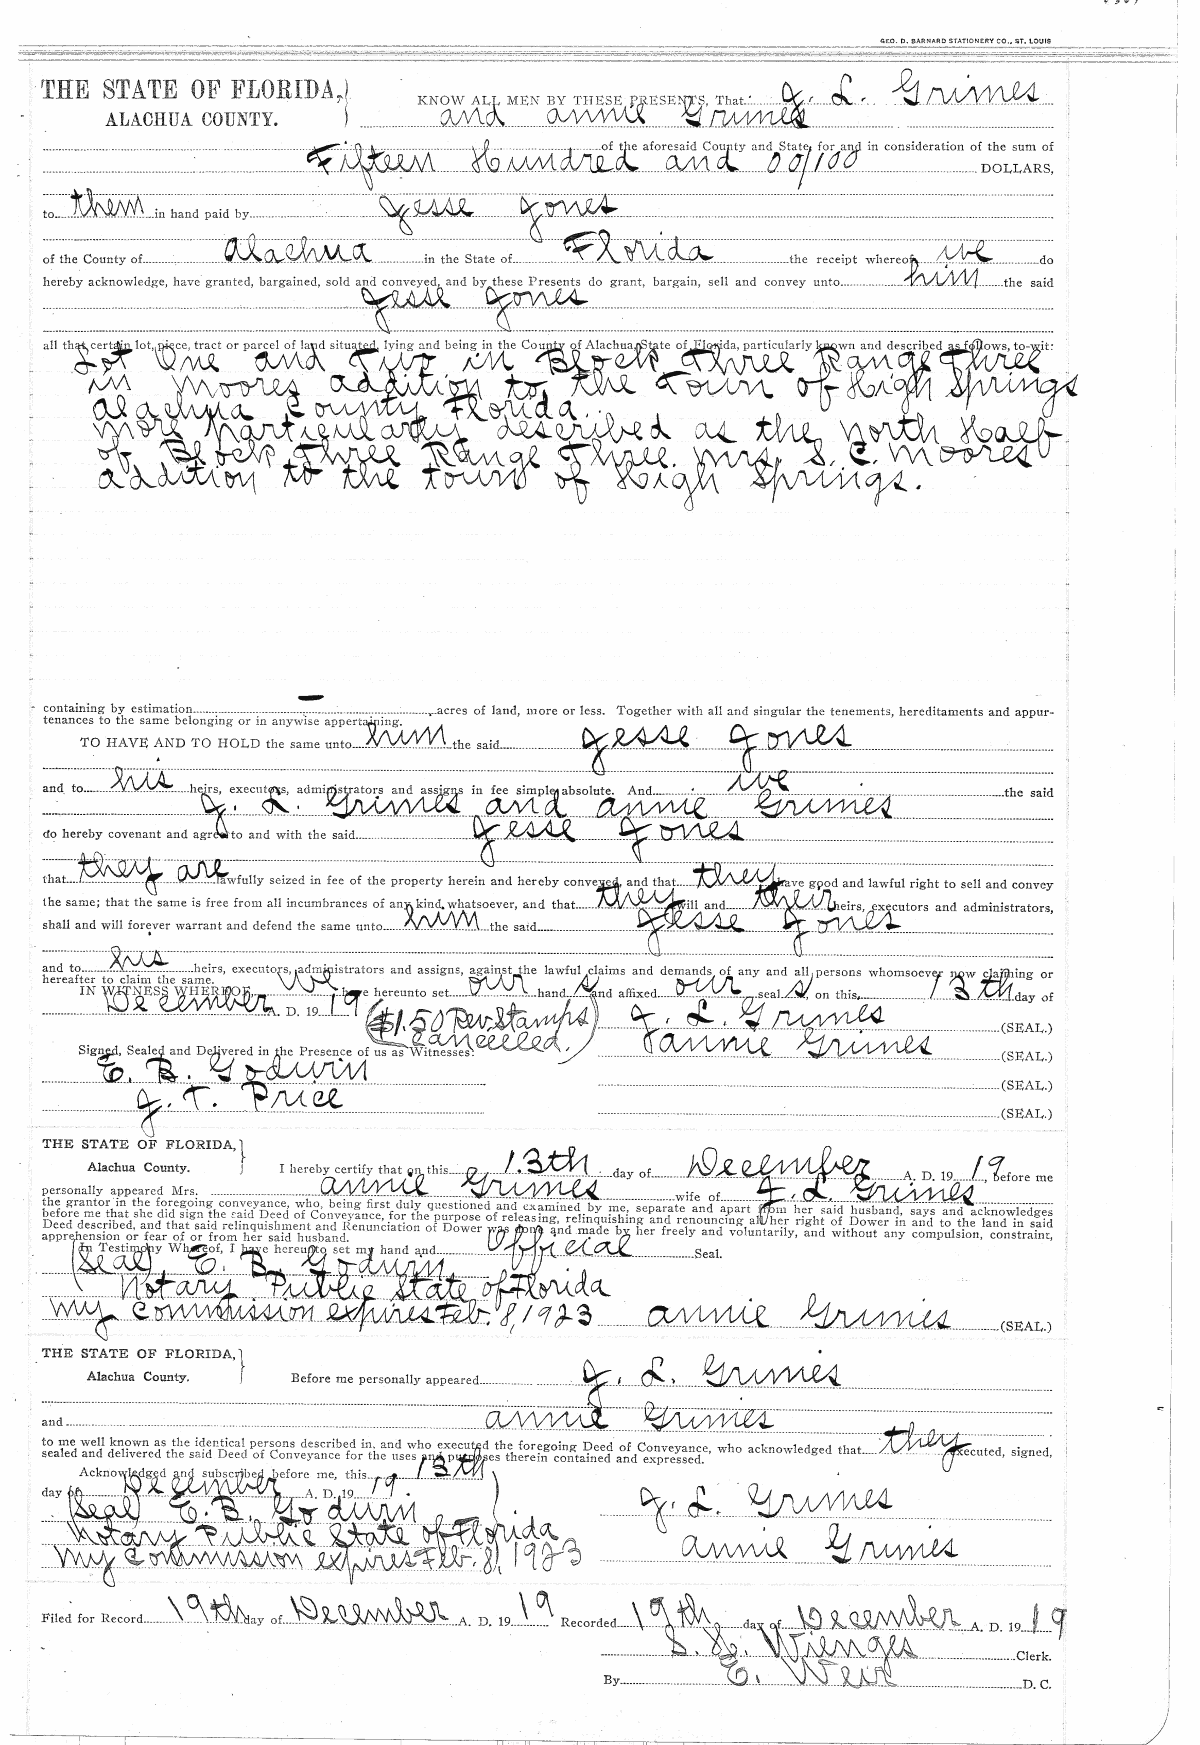 GEO. D. BARNARD STATIONERY CO., ST. LOUIS
THE STATE OF FLORIDA, KNOW ALL MEN BY THESE PRESENTS, That J. L. Grimes
ALACHUA COUNTY. and Annie Grimes
of the aforesaid County and State, for and in consideration of the sum of
Fifteen Hundred and 00/100 DOLLARS,
to them in hand paid by Jesse Jones
of the County of Alachua in the State of Florida the receipt whereof we do
hereby acknowledge, have granted, bargained, sold and conveyed, and by these Presents do grant, bargain, sell and convey unto him the said
Jesse Jones
all that certain lot, piece, tract or parcel of land situated, lying and being in the County of Alachua, State of Florida, particularly known and described as follows, to-wit:
Lot One and Two in Block Three Range Three
in Moores addition to the Town of High Springs
Alachua County Florida.
More particularly described as the North Half
of Block Three Range Three. Mrs. S. C. Moores
addition to the town of High Springs.
containing by estimation — acres of land, more or less. Together with all and singular the tenements, hereditaments and appur-
tenances to the same belonging or in anywise appertaining.
TO HAVE AND TO HOLD the same unto him the said Jesse Jones
and to his heirs, executors, administrators and assigns in fee simple absolute. And we the said
J. L. Grimes and Annie Grimes
do hereby covenant and agree to and with the said Jesse Jones
that they are lawfully seized in fee of the property herein and hereby conveyed and that they have good and lawful right to sell and convey
the same; that the same is free from all incumbrances of any kind whatsoever, and that they will and their heirs, executors and administrators,
shall and will forever warrant and defend the same unto him the said Jesse Jones
and to his heirs, executors, administrators and assigns, against the lawful claims and demands of any and all persons whomsoever now claiming or
hereafter to claim the same.
IN WITNESS WHEREOF, We have hereunto set our hand s and affixed our seal s, on this 13th day of
December A. D. 19 19 ($1.50 Rev. Stamps J. L. Grimes (SEAL.)
Cancelled.) Annie Grimes (SEAL.)
Signed, Sealed and Delivered in the Presence of us as Witnesses:
E. B. Godwin (SEAL.)
J. T. Price (SEAL.)
THE STATE OF FLORIDA,
Alachua County. I hereby certify that on this 13th day of December A. D. 19 19, before me
personally appeared Mrs. Annie Grimes wife of J. L. Grimes
the grantor in the foregoing conveyance, who, being first duly questioned and examined by me, separate and apart from her said husband, says and acknowledges
before me that she did sign the said Deed of Conveyance, for the purpose of releasing, relinquishing and renouncing all her right of Dower in and to the land in said
Deed described, and that said relinquishment and Renunciation of Dower was done and made by her freely and voluntarily, and without any compulsion, constraint,
apprehension or fear of or from her said husband.
In Testimony Whereof, I have hereunto set my hand and Official Seal.
(Seal) E. B. Godwin
Notary Public State of Florida
My Commission expires Feb. 8, 1923 Annie Grimes (SEAL.)
THE STATE OF FLORIDA,
Alachua County. Before me personally appeared J. L. Grimes
and Annie Grimes
to me well known as the identical persons described in, and who executed the foregoing Deed of Conveyance, who acknowledged that they executed, signed,
sealed and delivered the said Deed of Conveyance for the uses and purposes therein contained and expressed.
Acknowledged and subscribed before me, this 13th
day of December A. D. 19 19.
(Seal) E. B. Godwin J. L. Grimes
Notary Public State of Florida
My Commission expires Feb. 8, 1923 Annie Grimes
Filed for Record 19th day of December A. D. 19 19 Recorded 19th day of December A. D. 19 19
S. H. Wienges Clerk.
By E. Weir D. C.